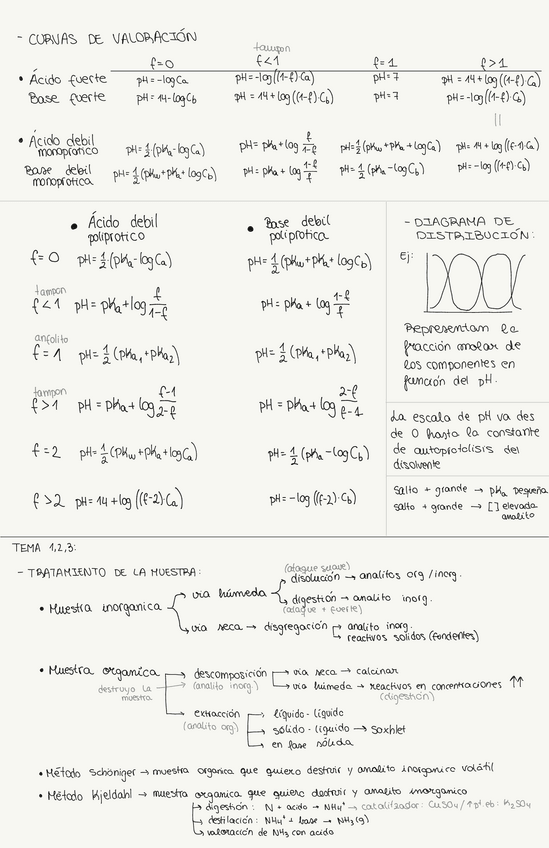 - CURVAS DE VALORACIÓN
tampon
f=0 f<1 f=1 f>1
• Ácido fuerte pH=-logCa pH=-log((1-f)·Ca) pH=7 pH=14+log((1-f)·Ca)
Base fuerte pH=14-logCb pH=14+log((1-f)·Cb) pH=7 pH=-log((1-f)·Cb)
||
• Ácido debil
monoprotico pH=1/2(pKa-logCa) pH=pKa+log f/1-f pH=1/2(pKw+pKa+logCa) pH=14+log((f-1)·Ca)
Base debil
monoprotica pH=1/2(pKw+pKa+logCb) pH=pKa+log 1-f/f pH=1/2(pKa-logCb) pH=-log((1-f)·Cb)
• Ácido debil
poliprotico
• Base debil
poliprotica
f=0 pH=1/2(pKa-logCa) pH=1/2(pKw+pKa+logCb)
tampon
f<1 pH=pKa+log f/1-f pH=pKa+log 1-f/f
anfolito
f=1 pH=1/2(pKa1+pKa2) pH=1/2(pKa1+pKa2)
tampon
f>1 pH=pKa+log f-1/2-f pH=pKa+log 2-f/f-1
f=2 pH=1/2(pKw+pKa+logCa) pH=1/2(pKa-logCb)
f>2 pH=14+log((f-2)·Ca) pH=-log((f-2)·Cb)
- DIAGRAMA DE
DISTRIBUCIÓN:
Ej:
Representan la
fracción molar de
los componentes en
función del pH.
La escala de pH va des
de 0 hasta la constante
de autoprotolisis del
disolvente
Salto + grande → pKa pequeña
salto + grande → [] elevada
analito
TEMA 1,2,3:
- TRATAMIENTO DE LA MUESTRA:
(ataque suave)
• Muestra inorganica via húmeda disolución → analitos org/inorg.
digestión → analito inorg.
(ataque + fuerte)
via seca → disgregación analito inorg.
reactivos solidos (fundentes)
• Muestra organica descomposición via seca → calcinar
destruyo la
muestra
(analito inorg.) via húmeda → reactivos en concentraciones ↑↑
(digestión)
extracción líquido-líquido
(analito org) sólido-líquido → Soxhlet
en fase sólida
• Método Schöniger → muestra organica que quiero destruir y analito inorganico volátil
• Método Kjeldahl → muestra organica que quiero destruir y analito inorganico
digestión: N + acido → NH4+ → catalizador: CuSO4/↑pt.eb: K2SO4
destilación: NH4+ + base → NH3(g)
valoración de NH3 con acido